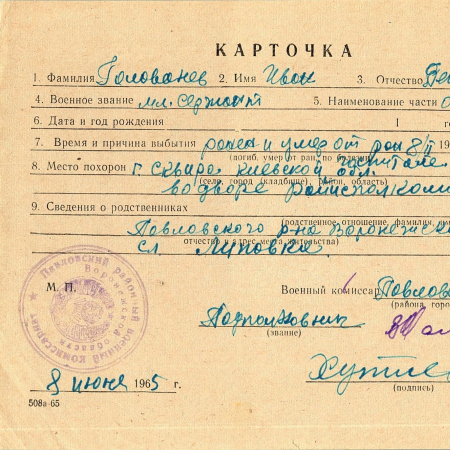 КАРТОЧКА
1. Фамилия Голованев 2. Имя Иван 3. Отчество
4. Военное звание мл. сержант 5. Наименование части
6. Дата и год рождения 1 го
7. Время и причина выбытия ранен и умер от ран 8/II 19
(погиб, умер от ран по болезни)
8. Место похорон г. Сквира Киевской обл.
(село, город (кладбище), район, область)
во дворе райисполком
9. Сведения о родственниках
(родственное отношение, фамилия, им
Павловского р-на Воронежск
отчество и адрес места жительства)
сл. Луповка.
М. П.
Павловский районный военный комиссариат
Воронежской области
Военный комиссар Павлов
(района, горо
Подполковник
(звание)
(подпись)
8 июня 1965 г.
508а-65